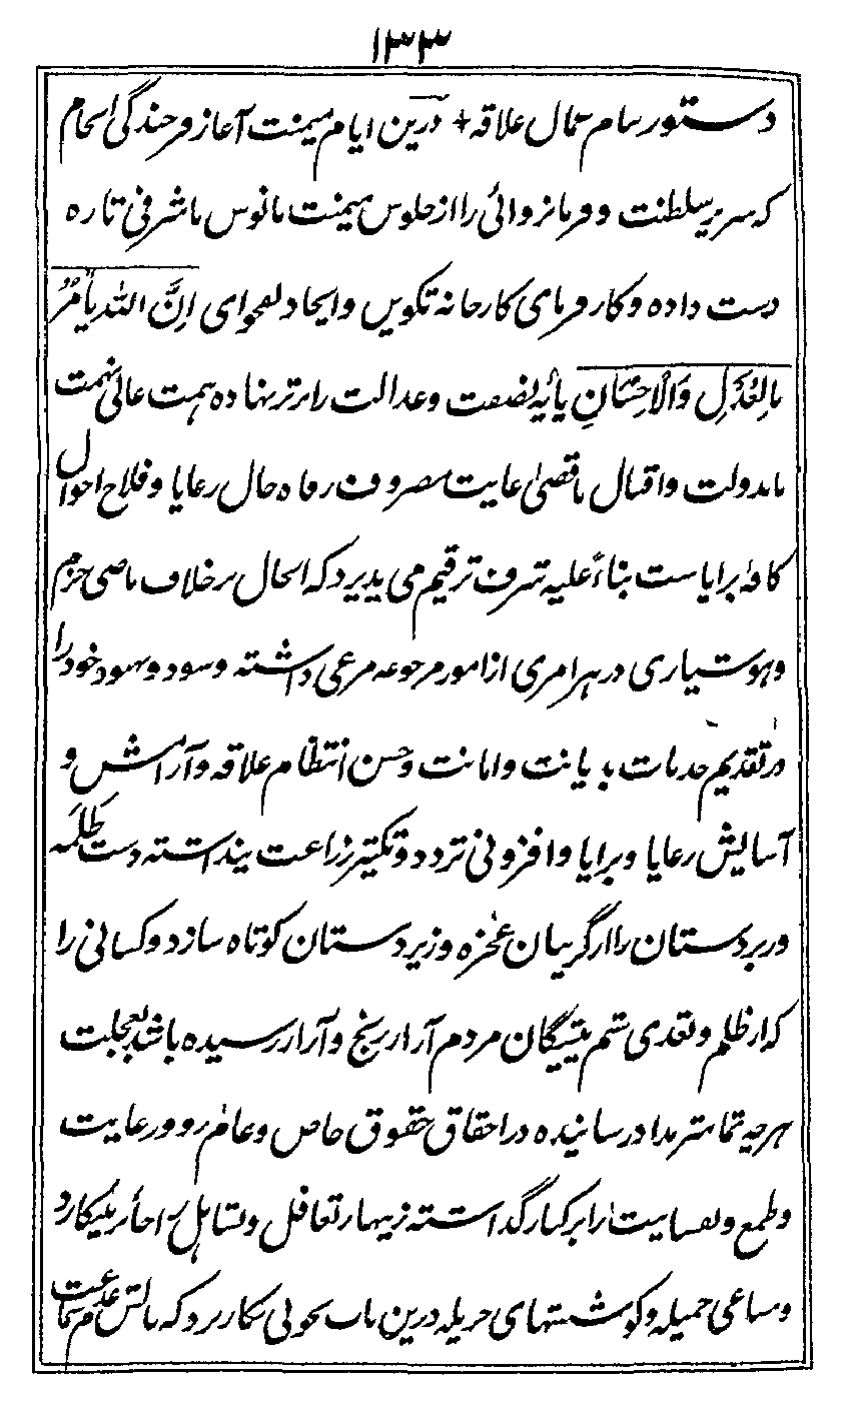 ۱۳۳
دستور بنام عمال علاقه + درین ایام میمنت آغاز فرخندگی انجام
که سریر سلطنت و فرمانروائی را از جلوس میمنت مانوس ما شرفی تازه
دست داده و کارفرمای کارخانه تکوین و ایجاد بفحوای اِنَّ الله یَأمُرُ
بِالعَدلِ وَالاِحسَانِ پایهٔ نصفت و عدالت را برتر نهاده همت عالی نهمت
ما بدولت و اقبال باقصیٰ غایت مصروف رفاه حال رعایا و فلاح احوال
کافهٔ برایاست بناءً علیه شرف ترقیم می پذیرد که الحال بر خلاف ماضی حزم
و هوشیاری در هر امری از امور مرجوعه مرعی داشته و سود و بهبود خود را
در تقدیم خدمات بدیانت و امانت و حسن انتظام علاقه و آرامش و
آسایش رعایا و برایا و افزونی تردد و تکثیر زراعت پنداشته دست ظلمه
و زبردستان را از گریبان عجزه و زیردستان کوتاه سازد و کسانی را
که از ظلم و تعدی ستم پیشگان مردم آزار رنج و آزار رسیده باشد بعجلت
هرچه تمامتر بداد رسانیده در احقاق حقوق خاص و عام رو و رعایت
و طمع و نفسانیت را بر کنار گذاشته زینهار تغافل و تساهل را جائز نینگارد
و مساعی جمیله و کوششهای جزیله درین باب بنحوی بکار برد که